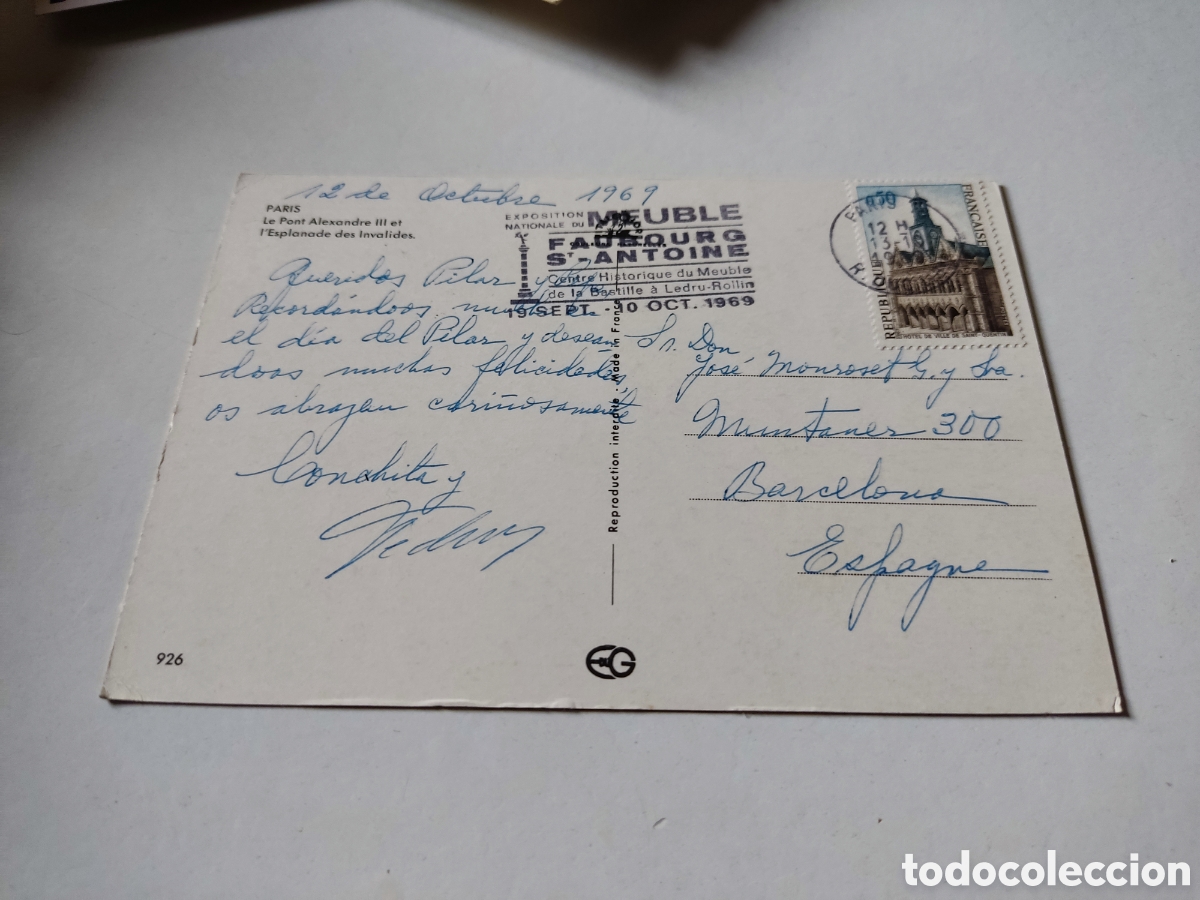 12 de Octubre 1969
PARIS
Le Pont Alexandre III et
l'Esplanade des Invalides.
Queridos Pilar y
Recordándoos mucho
el día del Pilar y desean
doos muchas felicidades,
os abrazan cariñosamente
Conchita y
926
EXPOSITION
NATIONALE DU MEUBLE
FAUBOURG
ST-ANTOINE
Centre Historique du Meuble
de la Bastille à Ledru-Rollin
19 SEPT. - 10 OCT. 1969
Reproduction interdite - Made in France
EG
PARIS
12 H
13-10
0,50
REPUBLIQUE FRANCAISE
HOTEL DE VILLE DE SAINT-QUENTIN
Sr. Don
José Monroset G. y Sra.
Muntaner 300
Barcelona
Espagne
todocoleccion